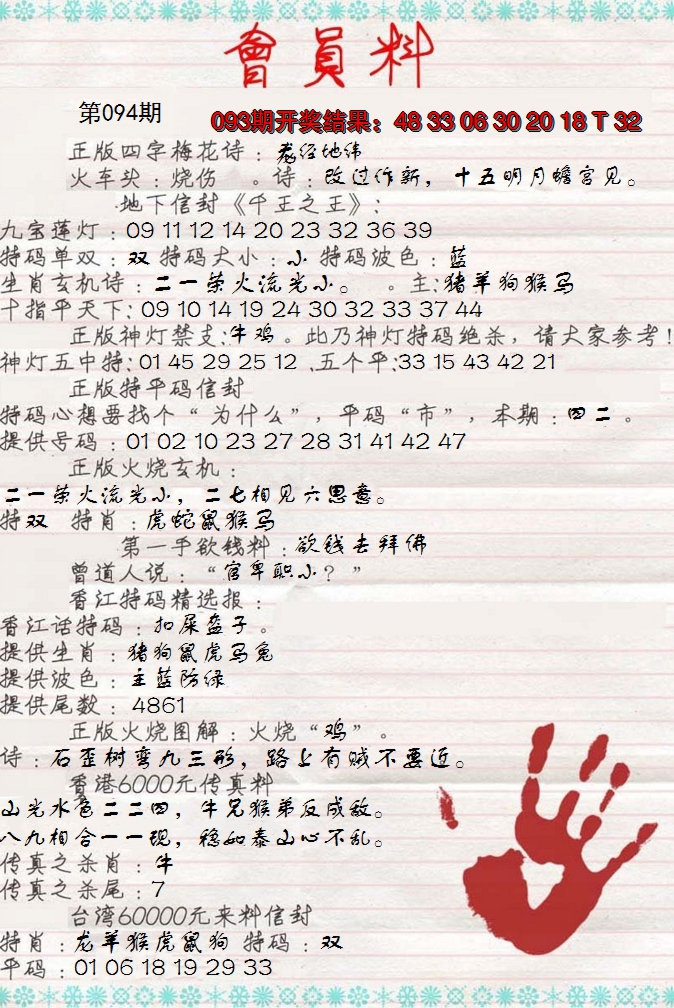 會員料
第094期
093期开奖结果：48 33 06 30 20 18 T 32
正版四字梅花诗：龙经地纬
火车头：烧伤 。诗：改过作新，十五明月蟾宫见。
地下信封《千王之王》：
九宝莲灯：09 11 12 14 20 23 32 36 39
特码单双：双 特码大小：小 特码波色：蓝
生肖玄机诗：二一荣火流光小。 。主：猪羊狗猴马
十指平天下：09 10 14 19 24 30 32 33 37 44
正版神灯禁支：牛鸡。此乃神灯特码绝杀，请大家参考！
神灯五中特：01 45 29 25 12 .五个平：33 15 43 42 21
正版特平码信封
特码心想要找个“为什么”，平码“市”，本期：四二。
提供号码：01 02 10 23 27 28 31 41 42 47
正版火烧玄机：
二一荣火流光小，二七相见六思意。
特双 特肖：虎蛇鼠猴马
第一手欲钱料：欲钱去拜佛
曾道人说：“官卑职小？”
香江特码精选报：
香江话特码：扣屎盔子。
提供生肖：猪狗鼠虎马兔
提供波色：主蓝防绿
提供尾数：4861
正版火烧图解：火烧“鸡”。
诗：石歪树弯九三形，路上有贼不要近。
香港6000元传真料
山光水色二二四，牛兄猴弟反成敌。
八九相合一一现，稳如泰山心不乱。
传真之杀肖：牛
传真之杀尾：7
台湾60000元来料信封
特肖：龙羊猴虎鼠狗 特码：双
平码：01 06 18 19 29 33